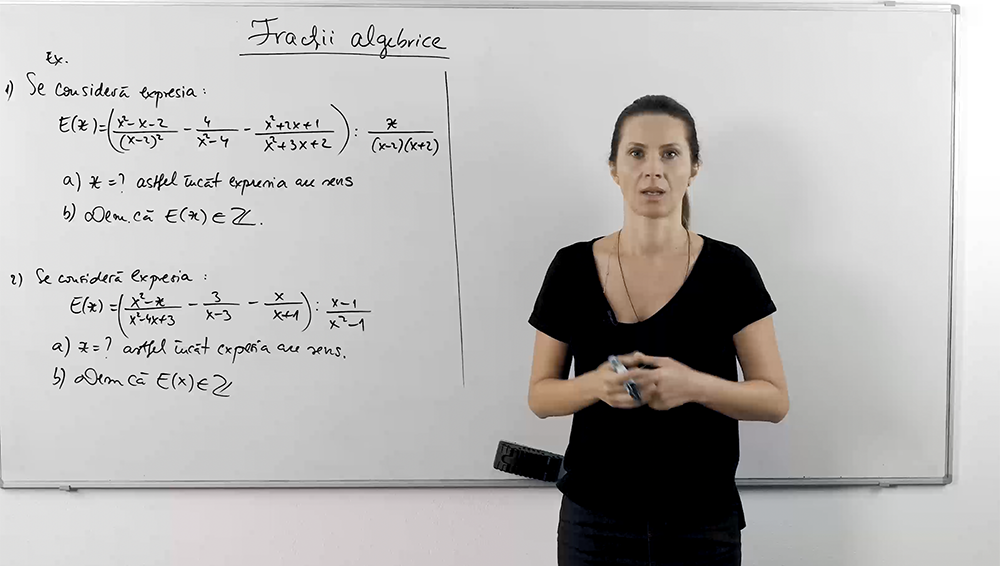 Fracții algebrice
Ex.
1) Se consideră expresia :
E(x)=((x²-x-2)/(x-2)² - 4/(x²-4) - (x²+2x+1)/(x²+3x+2)) : x/((x-2)(x+2))
a) x=? astfel încât expresia are sens
b) Dem. că E(x)∈ℤ.
2) Se consideră expresia :
E(x)=((x²-x)/(x²-4x+3) - 3/(x-3) - x/(x+1)) : (x-1)/(x²-1)
a) x=? astfel încât expresia are sens.
b) Dem că E(x)∈ℤ